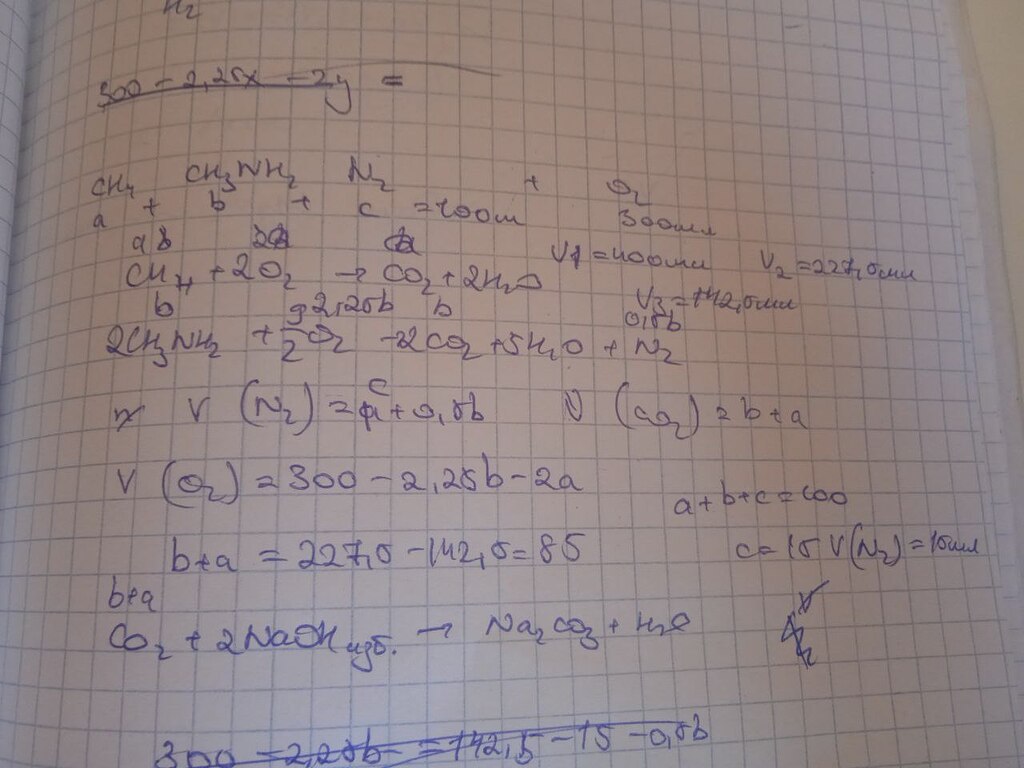 H₂
300 - 2,25x - 2y =
CH₄ CH₃NH₂ N₂ + O₂
a + b + c = 100мл 300мл
CH₄ + 2O₂ → CO₂ + 2H₂O V1 = 400мл V₂ = 227,5мл
b 2,25b b V₃ = 142,5мл
0,5b
2CH₃NH₂ + 9/2 O₂ → 2CO₂ + 5H₂O + N₂
V (N₂) = c + 0,5b V (CO₂) = b + a
V (O₂) = 300 - 2,25b - 2a
a + b + c = 100
b + a = 227,5 - 142,5 = 85 c = 15 V(N₂) = 15мл
b+a
CO₂ + 2NaOH изб. → Na₂CO₃ + H₂O
300 - 2,25b = 142,5 - 15 - 0,5b